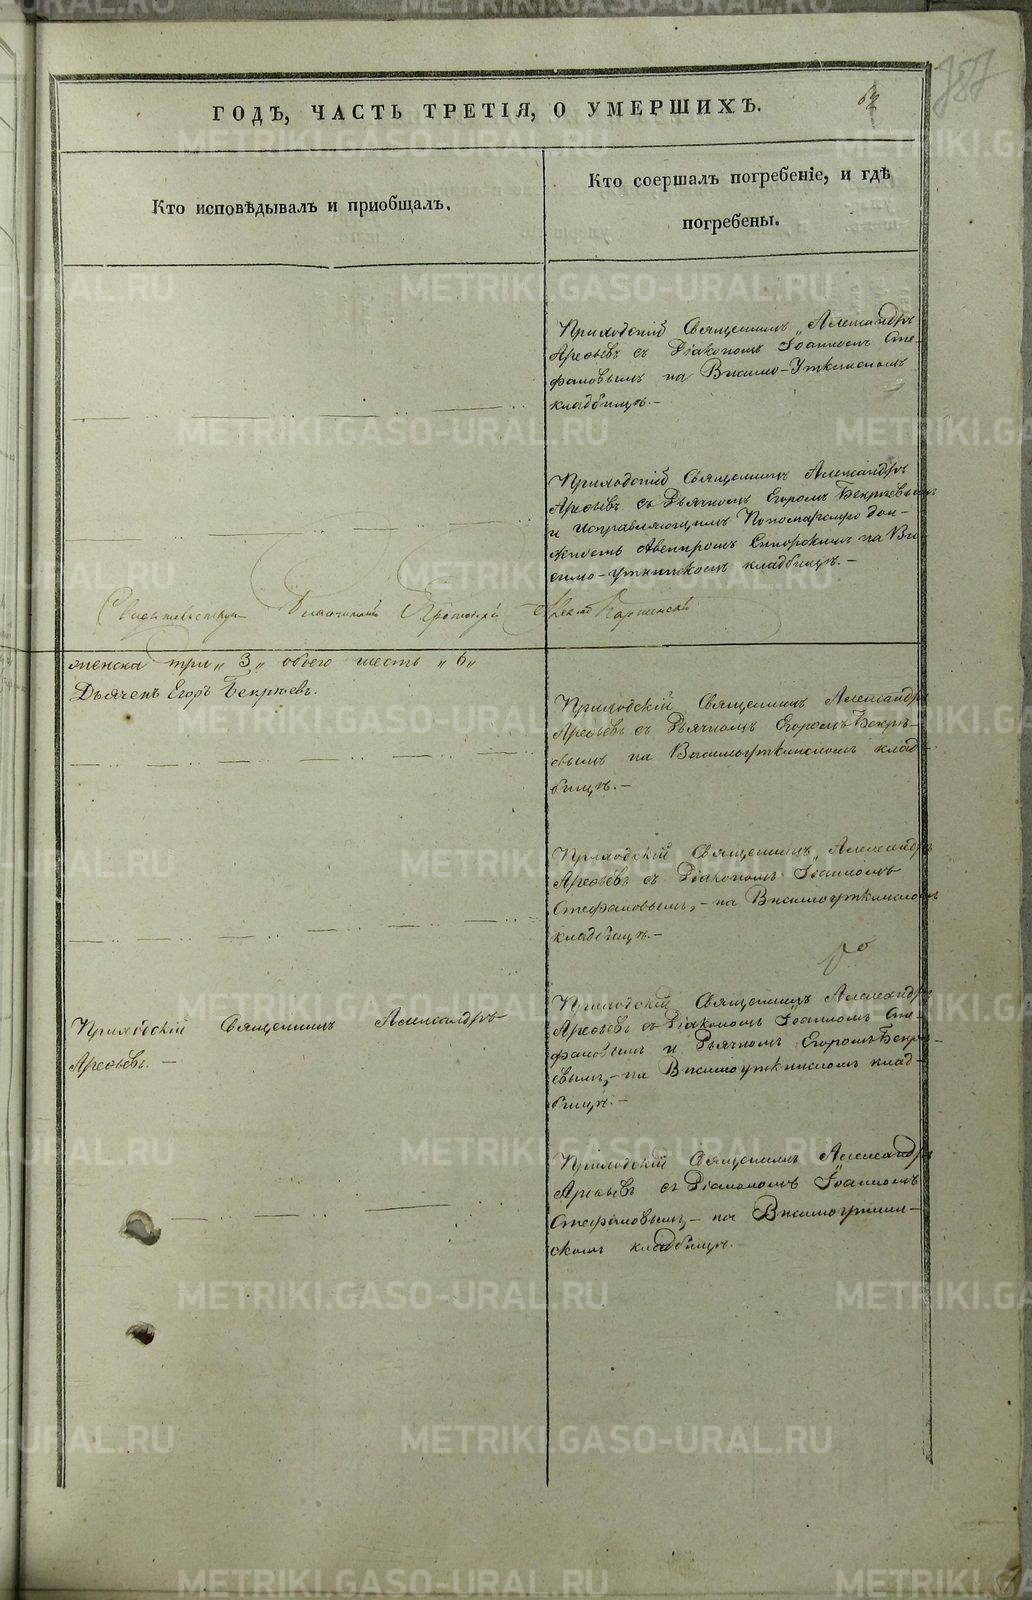 ГОДЪ, ЧАСТЬ ТРЕТІЯ, О УМЕРШИХЪ.
Кто исповѣдывалъ и приобщалъ.
Кто соершалъ погребеніе, и гдѣ
погребены.
Приходскій Священникъ Александръ
Арефьевъ съ Діакономъ Іоанномъ Сте-
фановымъ на Висимо-Уткинскомъ
кладбищѣ.-
Приходскій Священникъ Александръ
Арефьевъ съ Дьячкомъ Егоромъ Бекрѣевымъ
и исправляющимъ Пономарскую дол-
жность на Ви
симо-уткинскомъ кладбищѣ.-
женска три „3„ обоего шесть „6„
Дьячекъ Егоръ Бекрѣевъ.
Приходскій Священникъ Александръ
Арефьевъ съ Дьячкомъ Егоромъ Бекрѣ-
евымъ на Висимоуткинскомъ клад-
бищѣ.-
Приходскій Священникъ Александръ
Арефьевъ съ Діакономъ Іоанномъ
Стефановымъ,- на Висимоуткинскомъ
кладбищѣ.-
Приходскій Священникъ Александръ
Арефьевъ.-
Приходскій Священникъ Александръ
Арефьевъ съ Діакономъ Іоанномъ Сте-
фановымъ и Дьячкомъ Егоромъ Бекрѣ-
евымъ,- на Висимоуткинскомъ клад-
бищѣ.-
Приходскій Священникъ Александръ
Арефьевъ съ Діакономъ Іоанномъ
Стефановымъ,- на Висимоуткин-
скомъ кладбищѣ.
METRIKI.GASO-URAL.RU